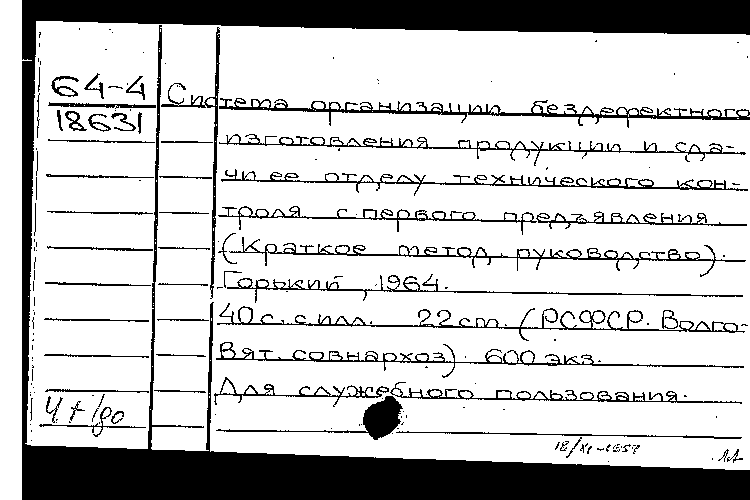 64-4
18631
Система организации бездефектного
изготовления продукции и сда-
чи ее отделу технического кон-
троля с первого предъявления.
(Краткое метод. руководство).
Горький, 1964.
40 с. с илл. 22 см. (РСФСР. Волго-
Вят. совнархоз). 600 экз.
Для служебного пользования.